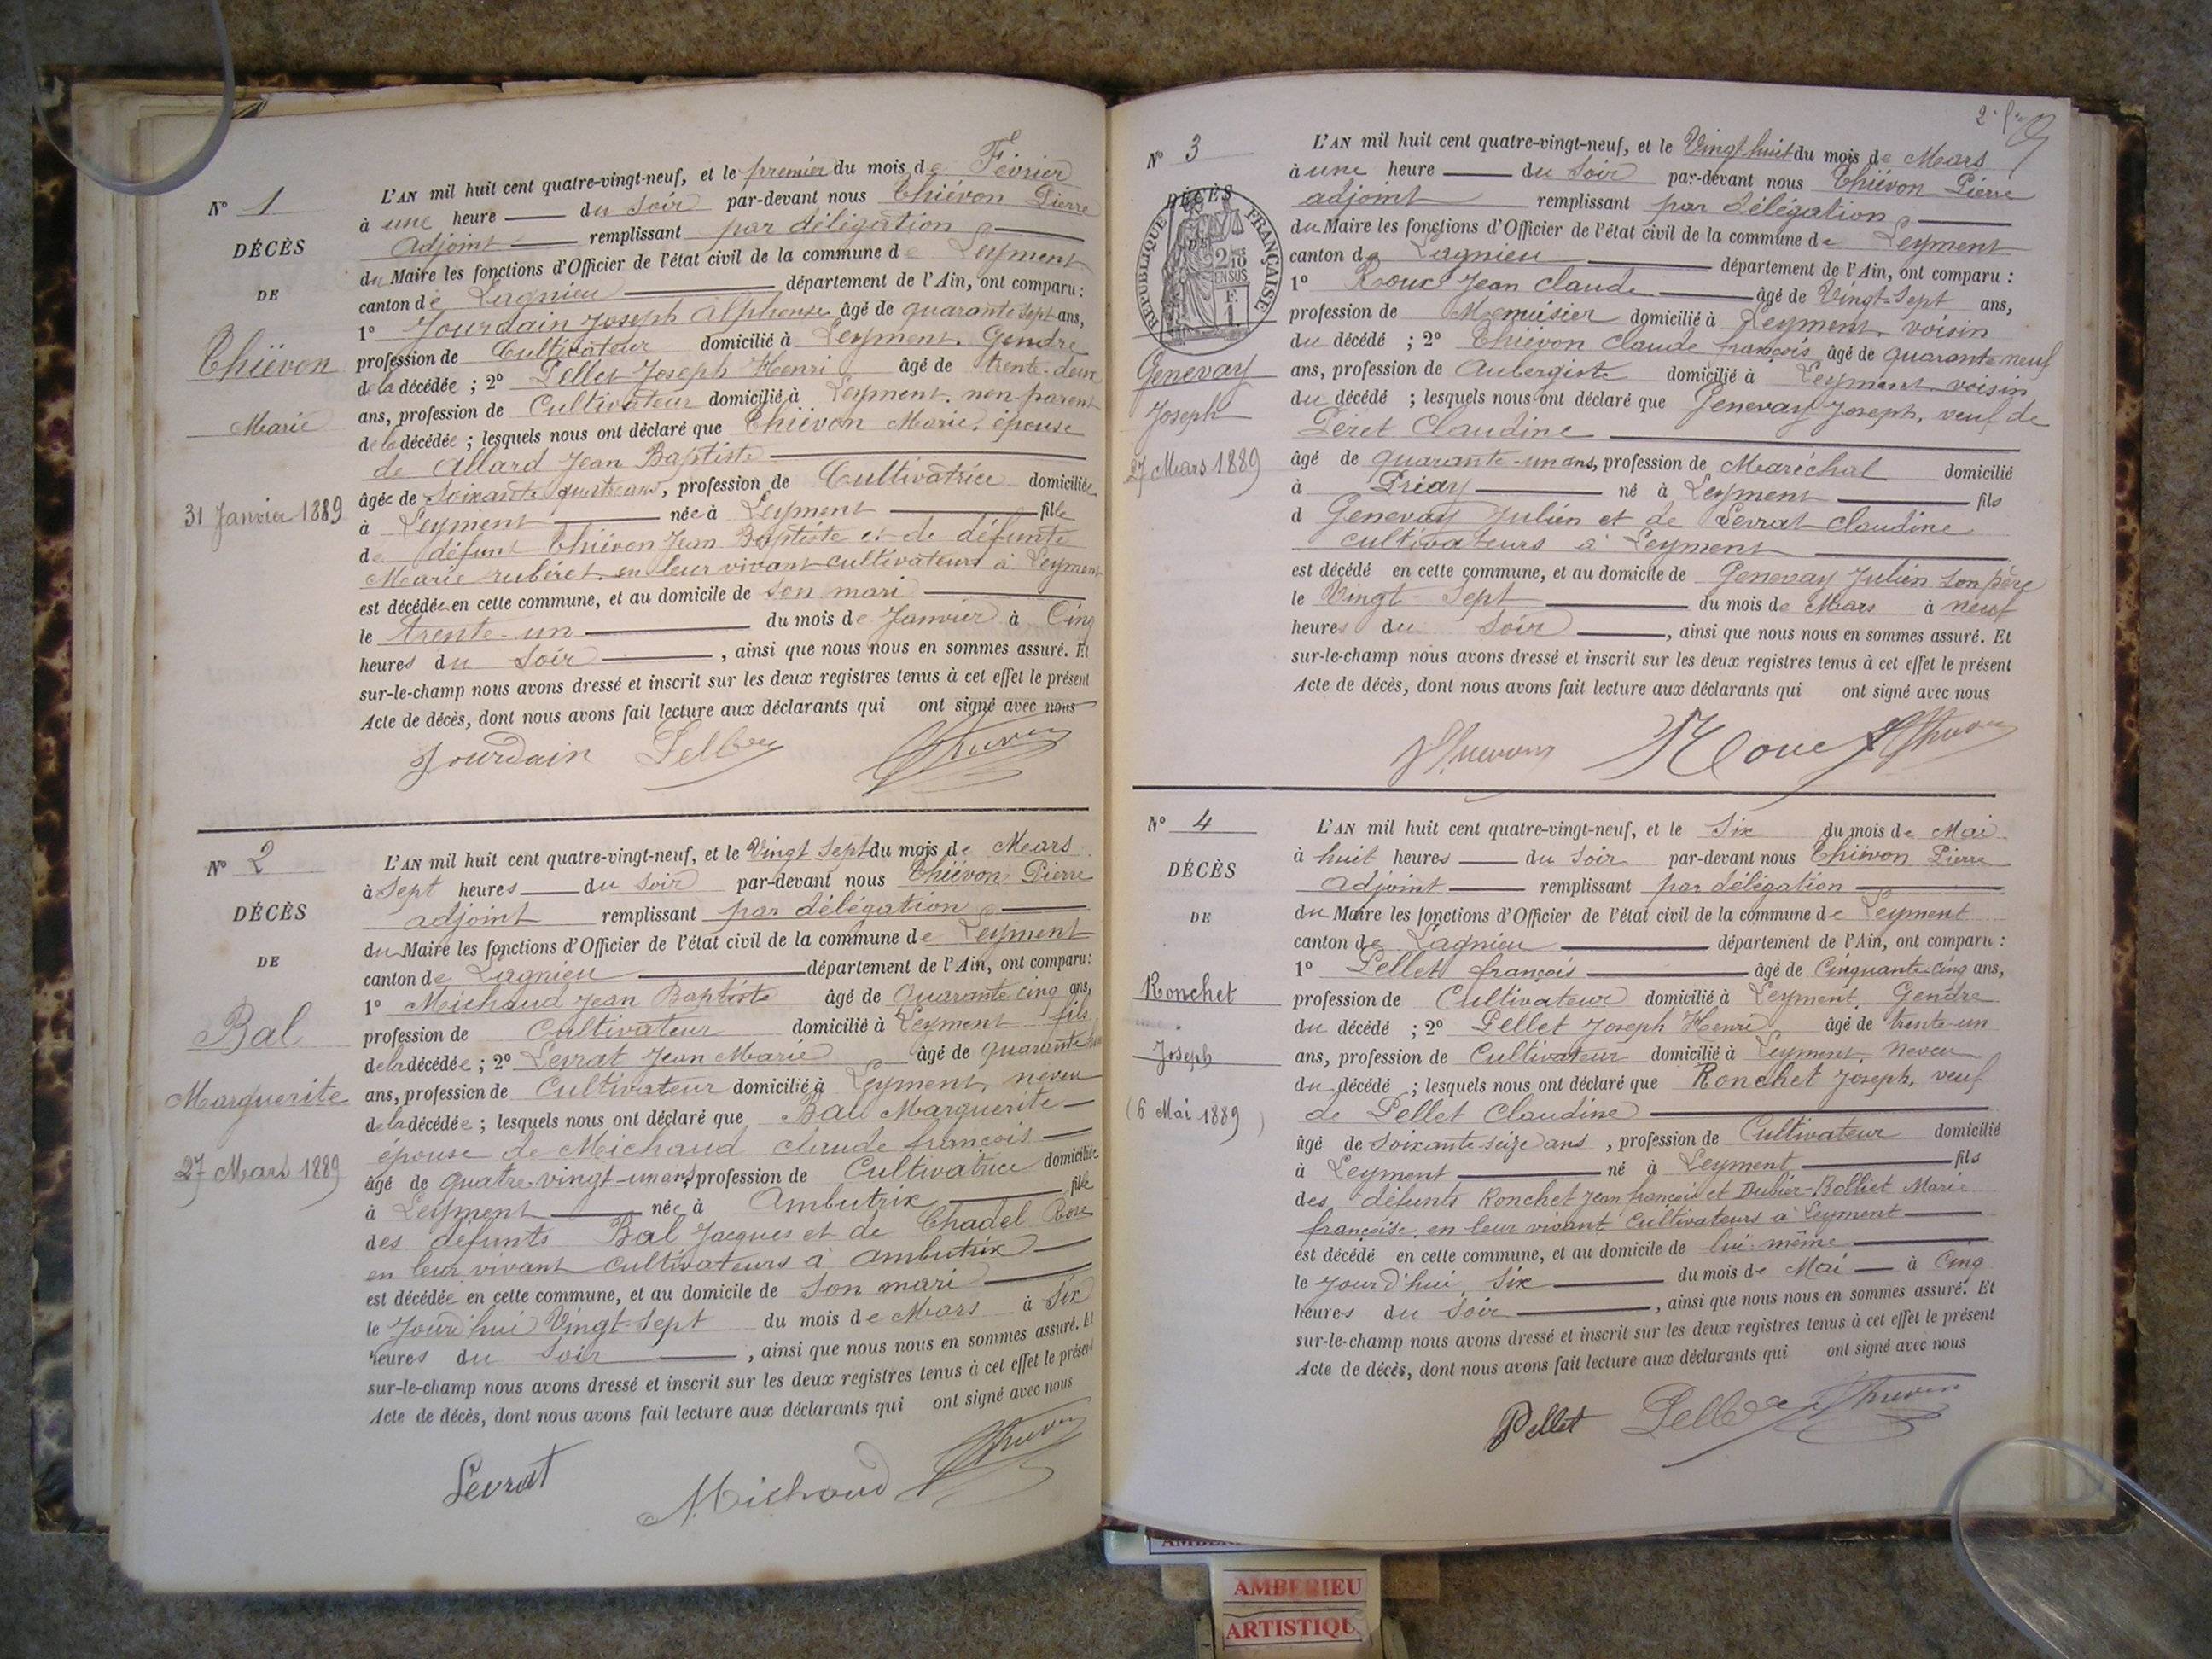 N° 1
DÉCÈS
DE
Thiévon
Marie
31 Janvier 1889
L'AN mil huit cent quatre-vingt-neuf, et le premier du mois de Février
à une heure du soir par-devant nous Thiévon Pierre
Adjoint remplissant par délégation
du Maire les fonctions d'Officier de l'état civil de la commune de Leyment
canton de Lagnieu département de l'Ain, ont comparu :
1° Jourdain Joseph Alphonse âgé de quarante sept ans,
profession de Cultivateur domicilié à Leyment. Gendre
de la décédée ; 2° Pellet Joseph Henri âgé de trente-deux
ans, profession de Cultivateur domicilié à Leyment. non parent
de la décédée ; lesquels nous ont déclaré que Thiévon Marie, épouse
de Allard Jean Baptiste
âgée de soixante quatre ans, profession de Cultivatrice domiciliée
à Leyment née à Leyment fille
de défunt Thiévon Jean Baptiste et de défunte
Marie rubéret en leur vivant cultivateurs à Leyment
est décédée en cette commune, et au domicile de son mari
le trente-un du mois de Janvier à Cinq
heures du soir, ainsi que nous nous en sommes assuré. Et
sur-le-champ nous avons dressé et inscrit sur les deux registres tenus à cet effet le présent
Acte de décès, dont nous avons fait lecture aux déclarants qui ont signé avec nous
Jourdain Pellet Thievon
N° 2
DÉCÈS
DE
Bal
Marguerite
27 Mars 1889
L'AN mil huit cent quatre-vingt-neuf, et le Vingt Sept du mois de Mars
à Sept heures du soir par-devant nous Thiévon Pierre
adjoint remplissant par délégation
du Maire les fonctions d'Officier de l'état civil de la commune de Leyment
canton de Lagnieu département de l'Ain, ont comparu :
1° Michaud Jean Baptiste âgé de Quarante cinq ans,
profession de Cultivateur domicilié à Leyment fils
de la décédée ; 2° Levrat Jean Marie âgé de quarante
ans, profession de Cultivateur domicilié à Leyment, neveu
de la décédée ; lesquels nous ont déclaré que Bal Marguerite
épouse de Michaud claude françois
âgé de quatre-vingt-un ans, profession de Cultivatrice domiciliée
à Leyment née à Ambutrix fille
des défunts Bal Jacques et de Chadel Rose
en leur vivant cultivateurs à Ambutrix
est décédée en cette commune, et au domicile de son mari
le jourd'hui Vingt-Sept du mois de Mars à Six
heures du soir, ainsi que nous nous en sommes assuré. Et
sur-le-champ nous avons dressé et inscrit sur les deux registres tenus à cet effet le présent
Acte de décès, dont nous avons fait lecture aux déclarants qui ont signé avec nous
Levrat Michaud Thievon
N° 3
DÉCÈS
DE
RÉPUBLIQUE FRANÇAISE
2/10 EN SUS
F. 1
Genevay
Joseph
27 Mars 1889
L'AN mil huit cent quatre-vingt-neuf, et le Vingt huit du mois de Mars
à une heure du soir par-devant nous Thiévon Pierre
adjoint remplissant par délégation
du Maire les fonctions d'Officier de l'état civil de la commune de Leyment
canton de Lagnieu département de l'Ain, ont comparu :
1° Roux Jean Claude âgé de Vingt-Sept ans,
profession de Menuisier domicilié à Leyment. voisin
du décédé ; 2° Thiévon Claude françois âgé de quarante neuf
ans, profession de Aubergiste domicilié à Leyment voisin
du décédé ; lesquels nous ont déclaré que Genevay Joseph, veuf de
Péret Claudine
âgé de quarante-un ans, profession de Maréchal domicilié
à Priay né à Leyment fils
d Genevay Julien et de Levrat claudine
cultivateurs à Leyment
est décédé en cette commune, et au domicile de Genevay Julien son père
le Vingt-Sept du mois de Mars à neuf
heures du soir, ainsi que nous nous en sommes assuré. Et
sur-le-champ nous avons dressé et inscrit sur les deux registres tenus à cet effet le présent
Acte de décès, dont nous avons fait lecture aux déclarants qui ont signé avec nous
Thievon Roux Thievon
N° 4
DÉCÈS
DE
Ronchet
Joseph
(6 Mai 1889)
L'AN mil huit cent quatre-vingt-neuf, et le Six du mois de Mai
à huit heures du soir par-devant nous Thiévon Pierre
Adjoint remplissant par délégation
du Maire les fonctions d'Officier de l'état civil de la commune de Leyment
canton de Lagnieu département de l'Ain, ont comparu :
1° Pellet françois âgé de Cinquante-cinq ans,
profession de Cultivateur domicilié à Leyment, Gendre
du décédé ; 2° Pellet Joseph Henri âgé de trente-un
ans, profession de Cultivateur domicilié à Leyment, neveu
du décédé ; lesquels nous ont déclaré que Ronchet Joseph, veuf
de Pellet Claudine
âgé de soixante-seize ans, profession de Cultivateur domicilié
à Leyment né à Leyment fils
des défunts Ronchet Jean françois et Dubier-Bolliet Marie
françoise, en leur vivant Cultivateurs à Leyment
est décédé en cette commune, et au domicile de lui-même
le jourd'hui Six du mois de Mai à Cinq
heures du soir, ainsi que nous nous en sommes assuré. Et
sur-le-champ nous avons dressé et inscrit sur les deux registres tenus à cet effet le présent
Acte de décès, dont nous avons fait lecture aux déclarants qui ont signé avec nous
Pellet Pellet Thievon
AMBERIEU
ARTISTIQU